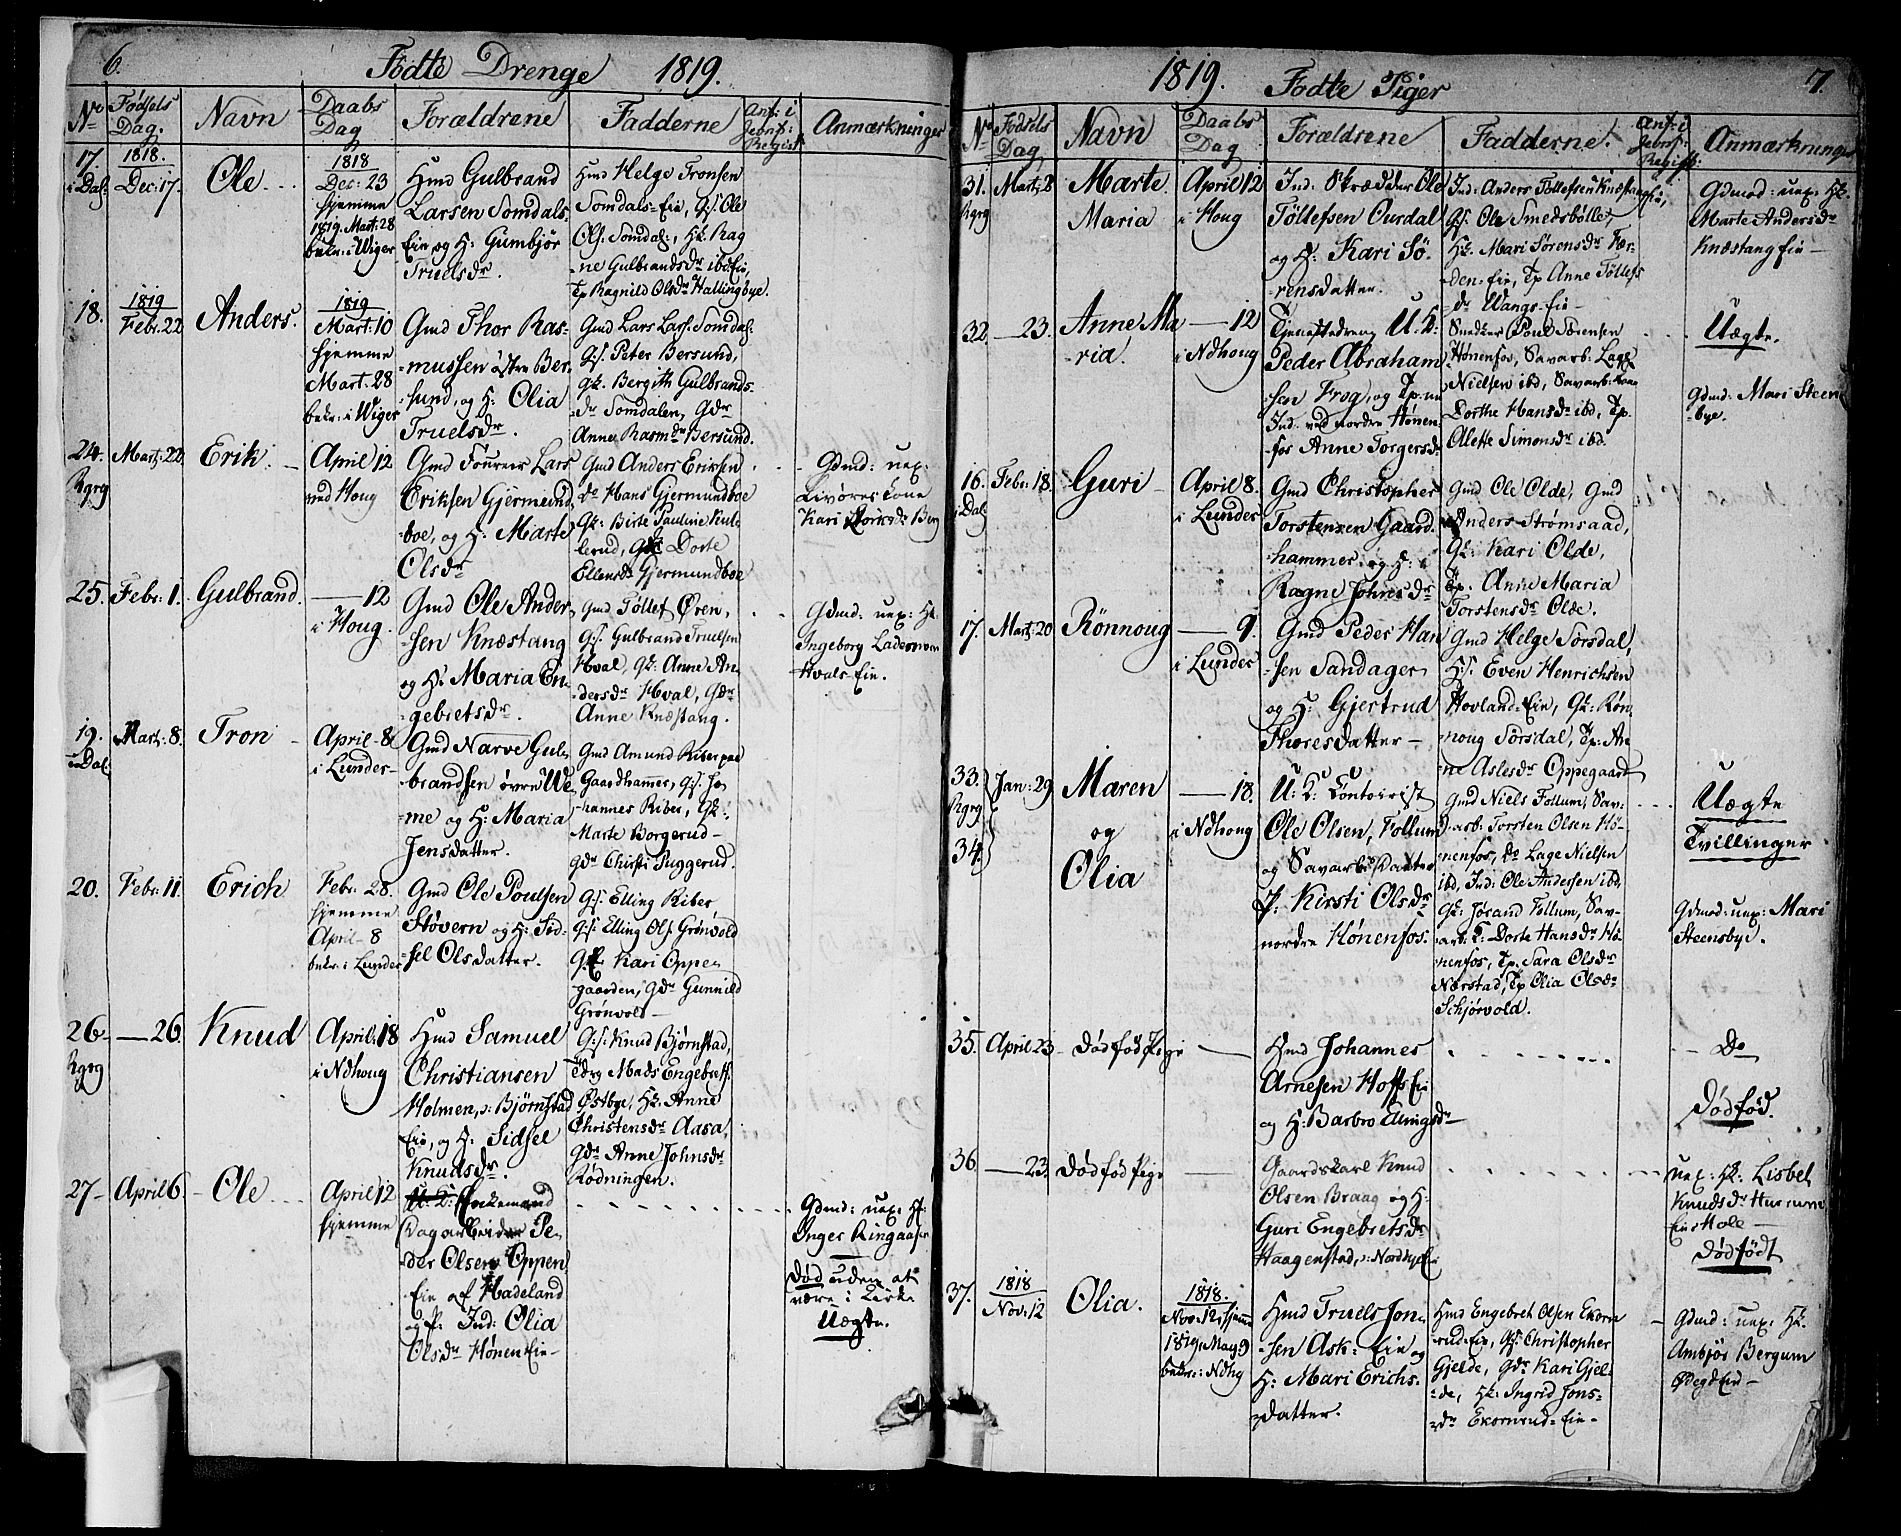 6.
Fødte Drenge 1819.
No
Fødsels Dag.
Navn
Daabs Dag
Forældrene
Fadderne
Anf: i Jevnf: Regist.
Anmærkninger
17.
i Dal:
1818.
Dec: 17.
Ole
1818
Dec: 23
hjemme
1819. Mart: 28
bekr: i Wiger
Hmd Gulbrand
Larsen Somdals-
Eie og H: Gumbjør
Truelsdr.
Hmd Helge Tronsen
Somdals-Eie, G:s: Ole
Ols: Somdal:, Hk: Rag
-ne Gulbrandsdr ibd Eie,
Tp Ragnild Olsdr Hallingbye.
18.
1819
Febr: 22
Anders.
1819
Mart: 10
hjemme
Mart: 28
bekr: i Wiger
Gmd Thor Ras-
-mussen østre Ber-
-sund, og H: Olia
Truelsdr.
Gmd Lars Lars: Somdal:
G:s: Peter Bersund,
gk: Bergith Gulbrands-
-dr Somdalen, Gdr
Anne Rasmdr Bersund.
24.
Rgrg
Mart: 22
Erik.
April 12
ved Houg
Gmd Fourer Lars
Eriksen Gjermund-
-boe, og H: Marte
Olsdr
Gmd Anders Eriksen
do Hans Gjermundboe
Gk: Birte Pauline Kul-
lerud, Gdr Dorte
Ellensdr Gjermundboe
Gdmd: uex:
Livøres Kone
Kari Eriksdr Berg
25.
Febr: 1.
Gulbrand.
— 12
i Houg.
Gmd Ole Ander-
-sen Knæstang
og H: Maria En-
-gebretsdr.
Gmd Tøllef Øren,
G:s: Gulbrand Truelsen
Hval, gk: Anne An-
dersdr Hval, Gdr
Anne Knæstang.
Gdmd: uex: Hk:
Ingeborg
Hvals-Eie.
19.
i Dal:
Mart: 8.
Tron
April 8
i Lunder
Gmd Narve Gul-
brandsen øvre We-
-me og H: Maria
Jensdatter.
Gmd Amund Riber paa
Gaardhammer, G:s: Jo-
-hannes Riber, Gk:
Marte Borgerud
Gdr Christi Suggerud.
20.
Febr: 11.
Erich
Febr: 28.
hjemme
April 8
bekr: i Lunder
Gmd Ole Poulsen
Støvern og H: Sid-
-sel Olsdatter.
G:s: Elling Riber
G:s: Elling Ols: Grønvold
Gk Kari Oppe-
gaarden, Gdr Gunnild
Grønvold
26.
Rgrg
— 26.
Knud
April: 18
i Ndhoug
Hmd Samuel
Christiansen
Holmen, Bjørnstad
Eie, og H: Sidsel
Knudsdr.
G:s: Knud Bjørnstad,
Tdrg Mads Engebrets:
Østbye, Hk: Anne
Christensdr Aasa,
Gdr Anne Johnsdr
Rødningen.
27
April 6.
Ole
April 12
hjemme
U: K: Enkemand
Dagarbeider Pe-
-der Olsen Oppen
Eie af Hadeland
og P: Ind: Olia
Olsdr Hønen Eie
Gdmd: uex: Hk:
Inger Ringaasen
død uden at
være i Kirke
Uægte.
7.
1819. Fødte Piger
No
Fødsels Dag
Navn
Daabs Dag
Forældrene
Fadderne.
Anf: i Jevnf: Regist:
Anmærkninger
31.
Rgrg
Mart: 8
Marte
Maria
April 12
i Houg
Ind: Skrædder Ole
Tøllefsen Ourdal
og H: Kari Sø-
-rensdatter.
Ind: Anders Tøllefsen Knæstang Eie,
G:s: Ole Smedsbølle
Hk: Mari Sørensdr Fær-
den-Eie, Tp Anne Tøllefs
dr Wangs-Eie
Gdmd: uex: Hk:
Marte Andersdr
Knæstang Eie
32.
— 23.
Anne Ma
-ria.
— 12
i Ndhoug
Tjenestedreng U: K:
Peder Abraham
-sen Frog, og Tp:
Ind: ved nordre Hønen-
fos Anne Torgersdr
Snedker Poul Sørensen
Hønenfos, Savarb: Lage
Nielsen ibd, Savarb: Kone
Dorthe Hansdr ibd, Tp.
Alette Simonsdr ibd.
Uægte.
Gdmd: Mari Steens-
-bye.
16.
i Dal:
Febr: 18.
Guri
April 8.
i Lunder
Gmd Christopher
Torstensen Gaard-
-hammer, og H:
Ragne Johnsdr
Gmd Ole Olde, Gmd
Anders Strømsaad,
Gk: Kari Olde,
Tp. Anne Maria
Torstensdr Olde.
17.
Mart: 20
Rønnoug
— 9.
i Lunder
Gmd Peder Han
-sen Sandager
og H: Gjertrud
Thoresdatter
Gmd Helge Sørsdal,
H:s: Even Henrichsen
Hovland-Eie, Gk: Røn-
-noug Sørsdal, Tp: An
ne Aslesdr Oppegaard
33.
Rgrg
34.
Jan: 29
Maren
og
Olia
— 18.
i Ndhoug
U: K: Contoirist
Ole Olsen, Follum
og Savarb: Datter
P: Kirsti Olsdr
nordre Hønenfos.
Gmd Niels Follum, Sav-
-arb: Torsten Olsen Hø-
-nenfos, do Lage Nielsen
ibd, Ind: Ole Andersen ibd,
Gk: Jørand Follum, Sav-
arb: K: Dorte Hansdr Hø-
nenfos, Tp. Sara Olsdr
Nærstad, Tp Olia Olsdr
Schjørvold.
Uægte
Tvillinger
Gdmd: uex: Mari
Steensbye.
35.
April 23
Dødfød Pige
Hmd Johannes
Arnesen Hoffs Eie
og H: Barbro Ellingsdr
Do
Dødfød.
36
— 23.
Dødfød Pige
Gaardskarl Knud
Olsen Braag og H:
Guri Engebretsdr
Haagenstad, Nordbye Eie
uex: Hk: Lisbet
Knudsdr
Eie Hole
Dødfødt
37.
1818
Nov: 12
Olia.
1818.
Nov: 12 hjemme
1819, May 9
bekr: i Ndhg
Hmd Truels Jon-
-sen Ask-Eie og
H: Mari Erichs-
-datter.
Hmd Engebret Olsen Ekorn
-rud-Eie, G:s: Christopher
Gjelde, Gdr Kari Gjel-
-de, Hk: Ingrid Jons-
-dr Ekornrud-Eie
Gdmd: uex: Hk:
Ambjør Bergum
Ødegd Eie